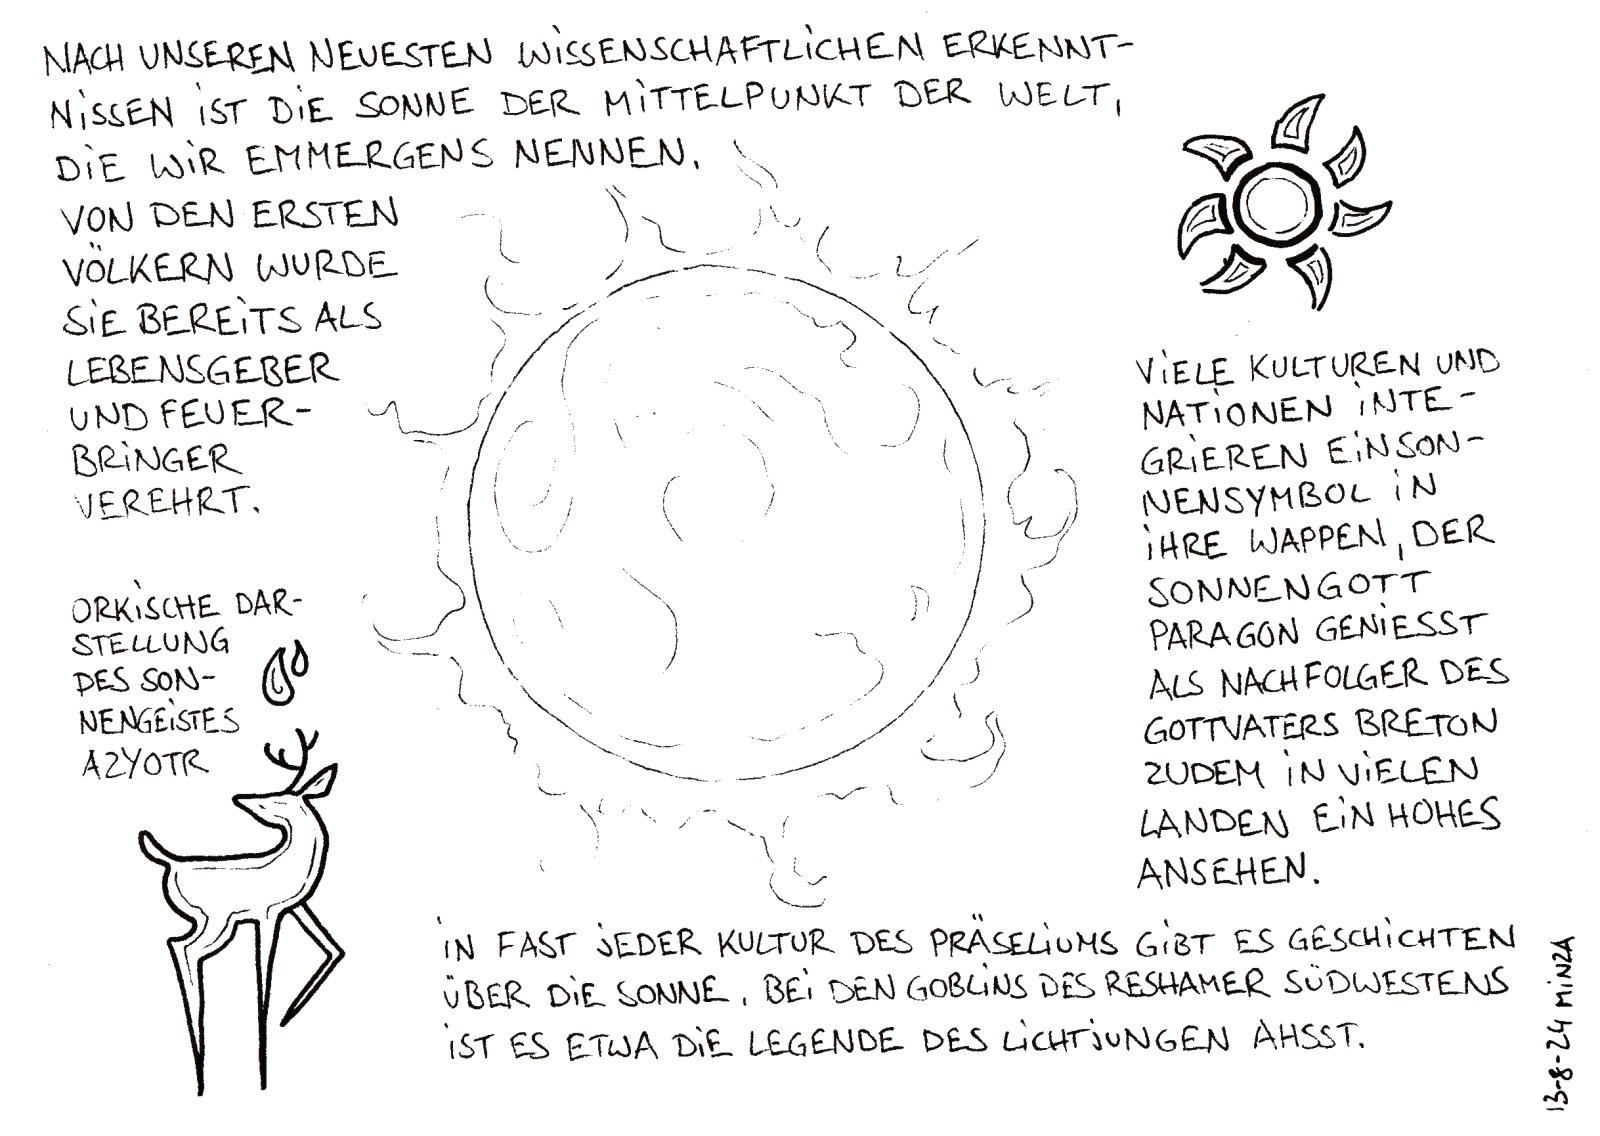 NACH UNSEREN NEUESTEN WISSENSCHAFTLICHEN ERKENNT-
NISSEN IST DIE SONNE DER MITTELPUNKT DER WELT,
DIE WIR EMMERGENS NENNEN.
VON DEN ERSTEN
VÖLKERN WURDE
SIE BEREITS ALS
LEBENSGEBER
UND FEUER-
BRINGER
VEREHRT.
ORKISCHE DAR-
STELLUNG
DES SON-
NENGEISTES
AZYOTR
VIELE KULTUREN UND
NATIONEN INTE-
GRIEREN EIN SON-
NENSYMBOL IN
IHRE WAPPEN, DER
SONNENGOTT
PARAGON GENIESST
ALS NACHFOLGER DES
GOTTVATERS BRETON
ZUDEM IN VIELEN
LANDEN EIN HOHES
ANSEHEN.
IN FAST JEDER KULTUR DES PRÄSELIUMS GIBT ES GESCHICHTEN
ÜBER DIE SONNE. BEI DEN GOBLINS DES RESHAMER SÜDWESTENS
IST ES ETWA DIE LEGENDE DES LICHTJUNGEN AHSST.
13-8-24 MINZA